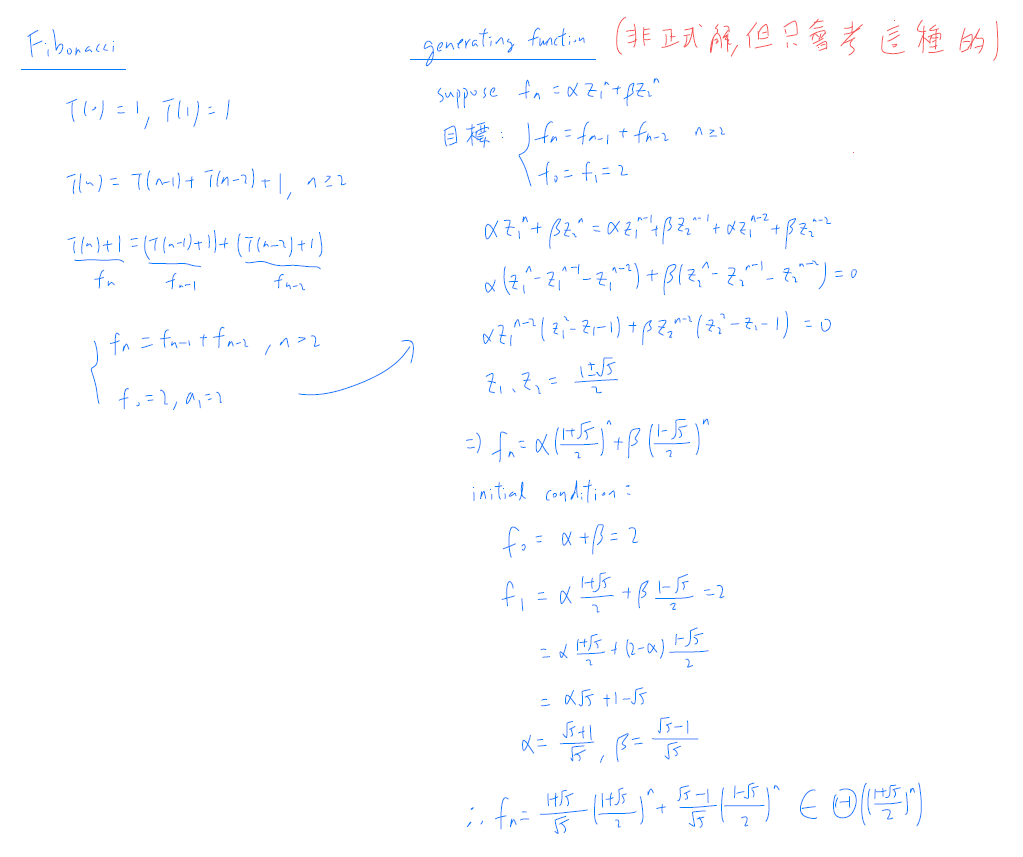 Fibonacci
T(0) = 1, T(1) = 1
T(n) = T(n-1) + T(n-2) + 1, n ≥ 2
T(n)+1 = (T(n-1)+1) + (T(n-2)+1)
fₙ fₙ₋₁ fₙ₋₂
fₙ = fₙ₋₁ + fₙ₋₂, n > 2
f₀ = 2, a₁ = 2
generating function (非正式解, 但只會考這種的)
suppose fₙ = αz₁ⁿ + βz₂ⁿ
目標: fₙ = fₙ₋₁ + fₙ₋₂ n ≥ 2
f₀ = f₁ = 2
αz₁ⁿ + βz₂ⁿ = αz₁ⁿ⁻¹ + βz₂ⁿ⁻¹ + αz₁ⁿ⁻² + βz₂ⁿ⁻²
α(z₁ⁿ - z₁ⁿ⁻¹ - z₁ⁿ⁻²) + β(z₂ⁿ - z₂ⁿ⁻¹ - z₂ⁿ⁻²) = 0
αz₁ⁿ⁻²(z₁² - z₁ - 1) + βz₂ⁿ⁻²(z₂² - z₂ - 1) = 0
z₁、z₂ = (1±√5)/2
⇒ fₙ = α((1+√5)/2)ⁿ + β((1-√5)/2)ⁿ
initial condition:
f₀ = α + β = 2
f₁ = α (1+√5)/2 + β (1-√5)/2 = 2
= α (1+√5)/2 + (2-α) (1-√5)/2
= α√5 + 1 - √5
α = (√5+1)/√5, β = (√5-1)/√5
∴ fₙ = (1+√5)/√5 ((1+√5)/2)ⁿ + (√5-1)/√5 ((1-√5)/2)ⁿ ∈ Θ(((1+√5)/2)ⁿ)